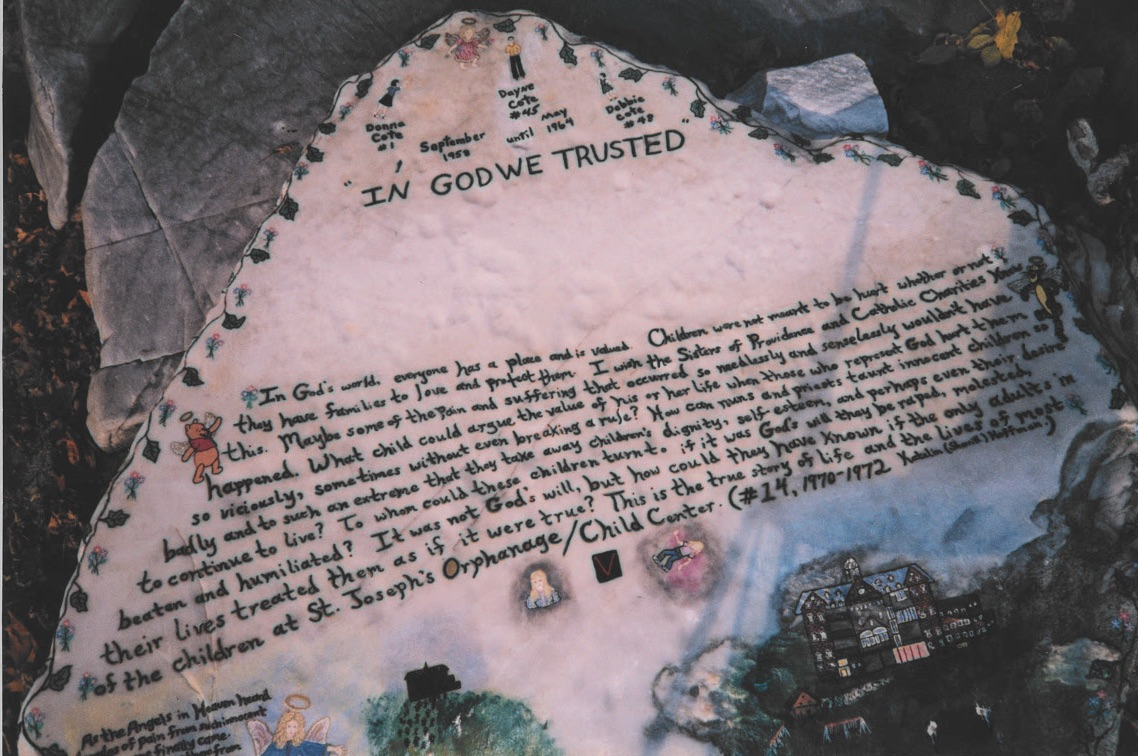 Donna
Cote
#1
Dayne
Cote
#45
Debbie
Cote
#48
September
1958
until
May
1964
"IN GOD WE TRUSTED"
In God's world, everyone has a place and is valued. Children were not meant to be hurt whether or not
they have families to love and protect them. I wish the Sisters of Providence and Catholic Charities knew
this. Maybe some of the pain and suffering that occurred so needlessly and senselessly wouldn't have
happened. What child could argue the value of his or her life when those who represent God hurt them
so viciously, sometimes without even breaking a rule? How can nuns and priests taunt innocent children so
badly and to such an extreme that they take away children's dignity, self-esteem, and perhaps even their desire
to continue to live? To whom could these children turn to. if it was God's will they be raped, molested
beaten and humiliated? It was not God's will, but how could they have known if the only adults in
their lives treated them as if it were true? This is the true story of life and the lives of most
of the children at St. Joseph's Orphanage/Child Center. (#14, 1970-1972 Hoffman.)
V
As the Angels in Heaven heard
of pain from such innocent
finally came.
from